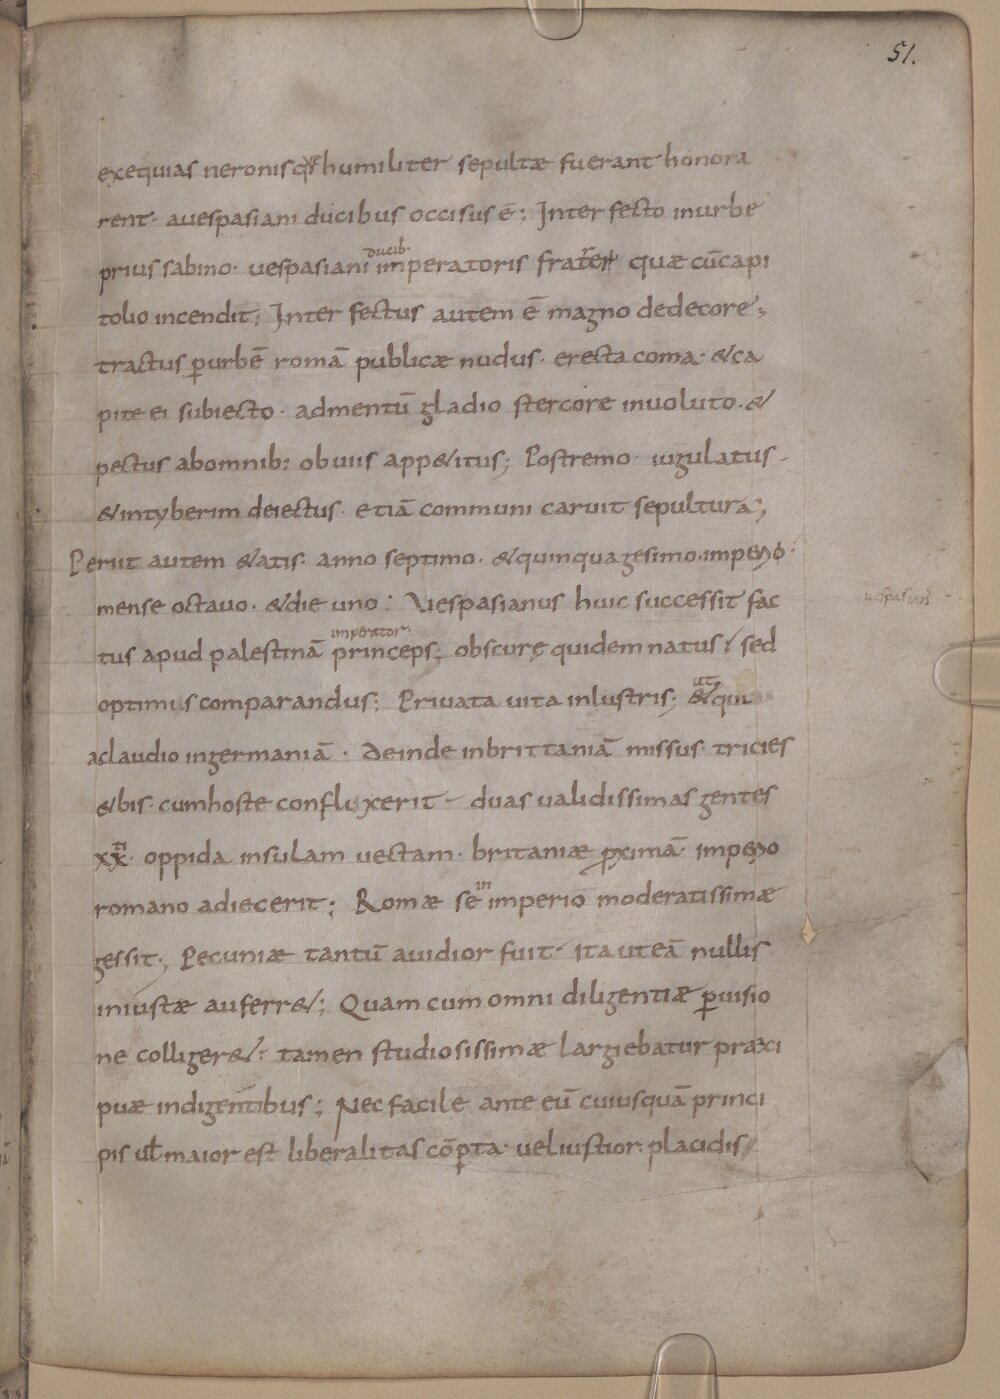 51.
exequias neronis q̄ humiliter sepultæ fuerant honora
rent· auespasiani ducibus occisus ē; Interfecto inurbe
ducib·
prius sabino· uespasiani imperatoris frater quæ cū capi
tolio incendit; Interfectus autem ē magno dedecore;
tractus ꝑurbē romā publicæ nudus· erecta coma· &ca
pite ei subiecto· admentū gladio stercore inuoluto· &
pectus abomnib: obuiis app&itus; Postremo iugulatus
&intyberim deiectus· etiā communi caruit sepultura;
Periit autem &atis· anno septimo· &quinquagesimo· imperio·
mense octauo· &die uno: Vespasianus huic successit fac
uespasian
imperator·
tus apud palestinā princeps; obscurę quidem natus; sed
optimis comparandus; Priuata uita inlustris; &qui
ut
aclaudio ingermaniā· deinde inbrittaniā missus· tricies
&bis· cumhoste conflixerit duas ualidissimas gentes
xx^ti· oppida insulam uectam· britaniæ ꝓximā· imperio
in
romano adiecerit; Romæ se imperio moderatissimæ
gessit; Pecuniæ tantū auidior fuit ita uteā nullis
iniustæ auferr&; Quam cum omni diligentiæ ꝑuisio
ne colliger&: tamen studiosissimæ largiebatur præci
puæ indigentibus; Nec facile ante eū cuiusquā princi
pis uł maior est liberalitas cōꝑta· uel iustior: placidis